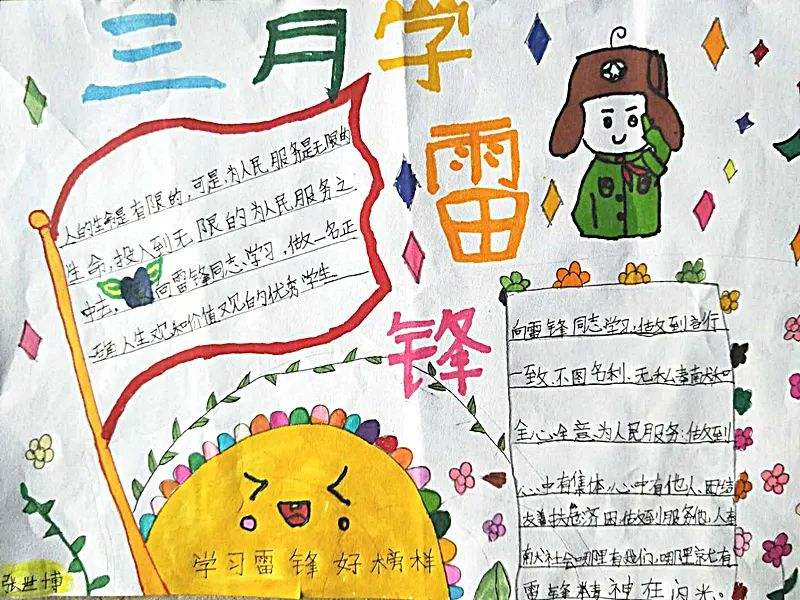 三月学
雷
锋
人的生命是有限的，可是，为人民服务是无限的
生命，投入到无限的为人民服务之
中去，向雷锋同志学习，做一名正
人生观和价值观的优秀学生
向雷锋同志学习，做到言行
一致、不图名利、无私奉献和
全心全意为人民服务；做到
心中有集体，心中有他人，团结
友善扶危济困，做到服务他人奉
献社会哪里有我们，哪里就有
雷锋精神在闪光。
学习雷锋好榜样
张世博